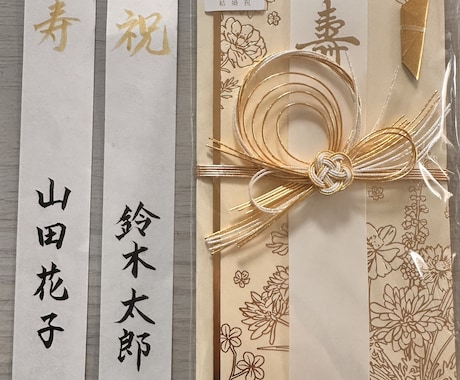 寿
山田花子
祝
鈴木太郎
結婚祝
壽